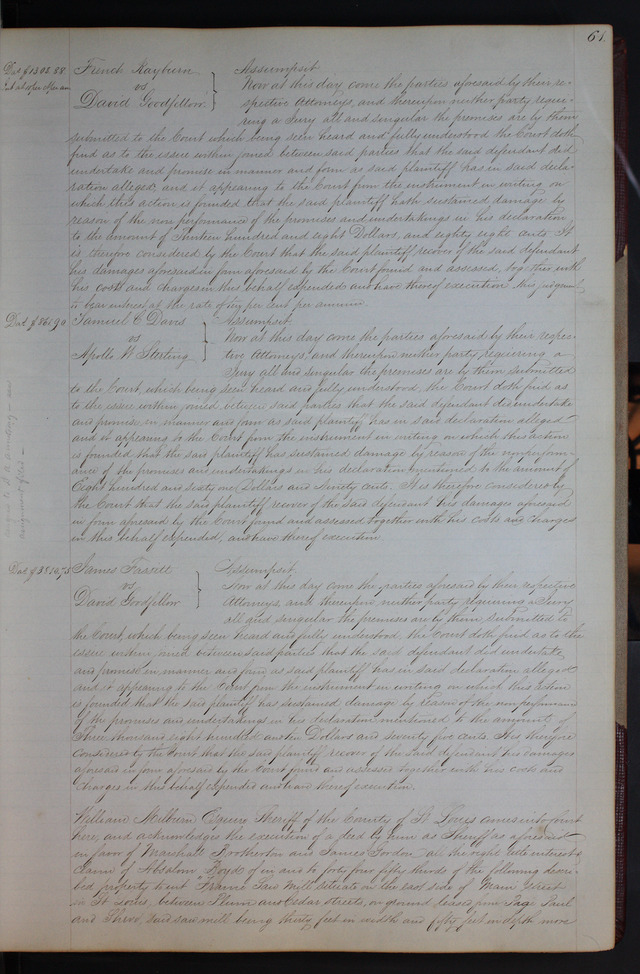 61.
Dat. $1308.88
French Rayburn
vs
David Goodfellow
Assumpsit
Now at this day come the parties aforesaid by their re-
spective Attorneys, and thereupon neither party requi-
ring a Jury all and singular the premises are by them
submitted to the Court which being seen heard and fully understood the Court doth
find as to the issue within joined between said parties that the said defendant did
undertake and promise in manner and form as said plaintiff has in said decla-
ration alleged, and it appearing to the Court from the instrument in writing on
which this action is founded that the said plaintiff hath sustained damage by
reason of the non performance of the promises and undertakings in his declaration
to the amount of Thirteen hundred and eight Dollars, and eighty eight cents. It
is therefore considered by the Court that the said plaintiff recover of the said defendant
his damages aforesaid in form aforesaid by the Court found and assessed, together with
his costs and charges in this behalf expended and have thereof execution this judgment
to bear interest at the rate of ten per cent per annum.
Dat. $861.90
Samuel C Davis
vs
Apollo W Sterling
Assumpsit.
Now at this day come the parties aforesaid by their respec-
tive Attorneys, and thereupon neither party requiring a
Jury all and singular the premises are by them submitted
to the Court, which being seen heard and fully understood, the Court doth find as
to the issue within joined between said parties that the said defendant did undertake
and promise in manner and form as said plaintiff has in said declaration alleged
and it appearing to the Court from the instrument in writing on which this action
is founded that the said plaintiff has sustained damage by reason of the non perform-
ance of the promises and undertakings in his declaration mentioned to the amount of
Eight hundred and sixty one Dollars and Ninety cents. It is therefore considered by
the Court that the said plaintiff recover of the said defendant his damages aforesaid
in form aforesaid by the Court found and assessed together with his costs and charges
in this behalf expended, and have thereof execution.
Dat. $3810.75
James
vs
David Goodfellow
Assumpsit
Now at this day come the parties aforesaid by their respective
Attorneys, and thereupon neither party requiring a Jury
all and singular the premises are by them submitted to
the Court, which being seen heard and fully understood the Court doth find as to the
issue within joined between said parties that the said defendant did undertake
and promise in manner and form as said plaintiff has in said declaration alleged
and it appearing to the Court from the instrument in writing on which this action
is founded that the said plaintiff has sustained damage by reason of the non performance
of the promises and undertakings in his declaration mentioned to the amount of
Three thousand eight hundred and ten Dollars and seventy five cents. It is therefore
considered by the Court that the said plaintiff recover of the said defendant his damages
aforesaid in form aforesaid by the Court found and assessed together with his costs and
charges in this behalf expended and have thereof execution.
William Milburn Esquire Sheriff of the County of St Louis comes into Court
here, and acknowledges the execution of a deed by him as Sheriff as aforesaid
in favor of Marshall Brotherton and James Gordon all the right title interest &
claim of Absalom in and to forty four fifty thirds of the following descri-
bed property to wit "Frame Saw Mill situate on the east side of Main Street
in St Louis, between Plum and Cedar streets, on ground leased from Page Paul
and said saw mill being thirty feet in width and fifty feet in depth more